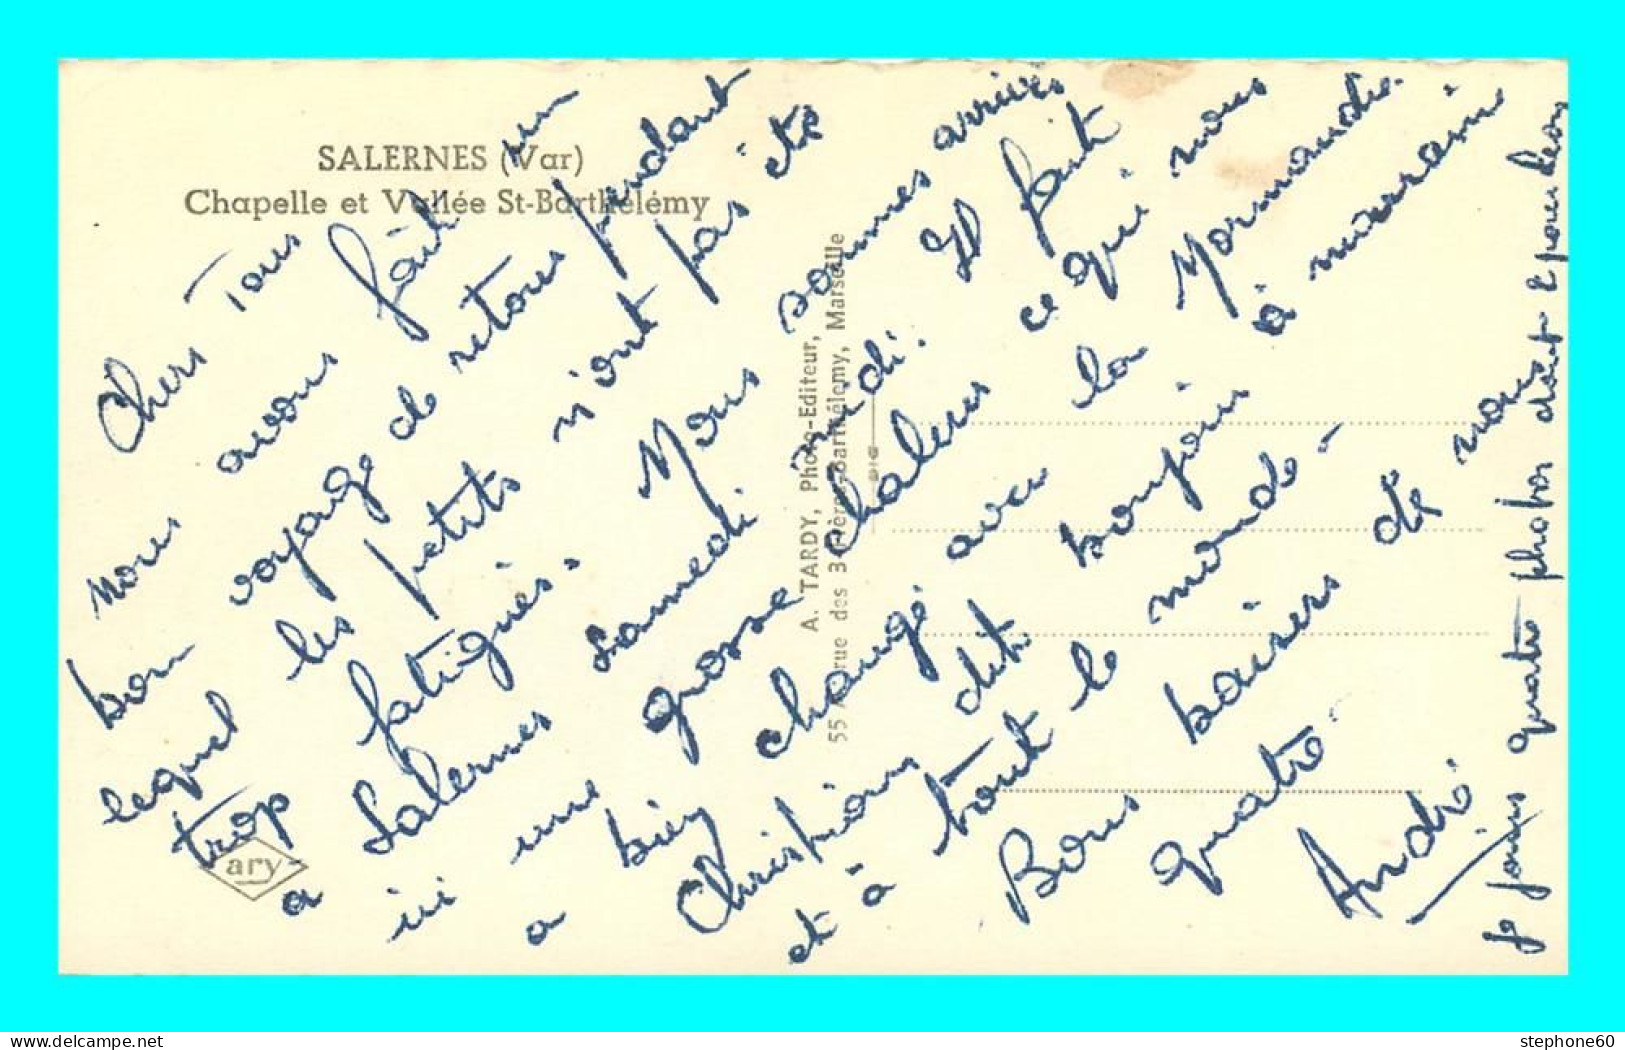 SALERNES (Var)
Chapelle et Vallée St-Barthélemy
Chers Tous
Nous avons fait un
bon voyage de retour pendant
lequel les petits n'ont pas été
trop fatigués. Nous sommes arrivés
a Salernes Samedi midi. Il fait
ici une grosse chaleur ce qui nous
a bien changé avec la Normandie.
Christian dit bonjour à marraine
et à tout le monde -
Bons baisers de nous
quatre.
André
Je joins quatre photos dont 2 pour Léon
A. TARDY, Photo-Editeur,
55 rue des 3 Frères-Barthélemy, Marseille
ary
stephone60